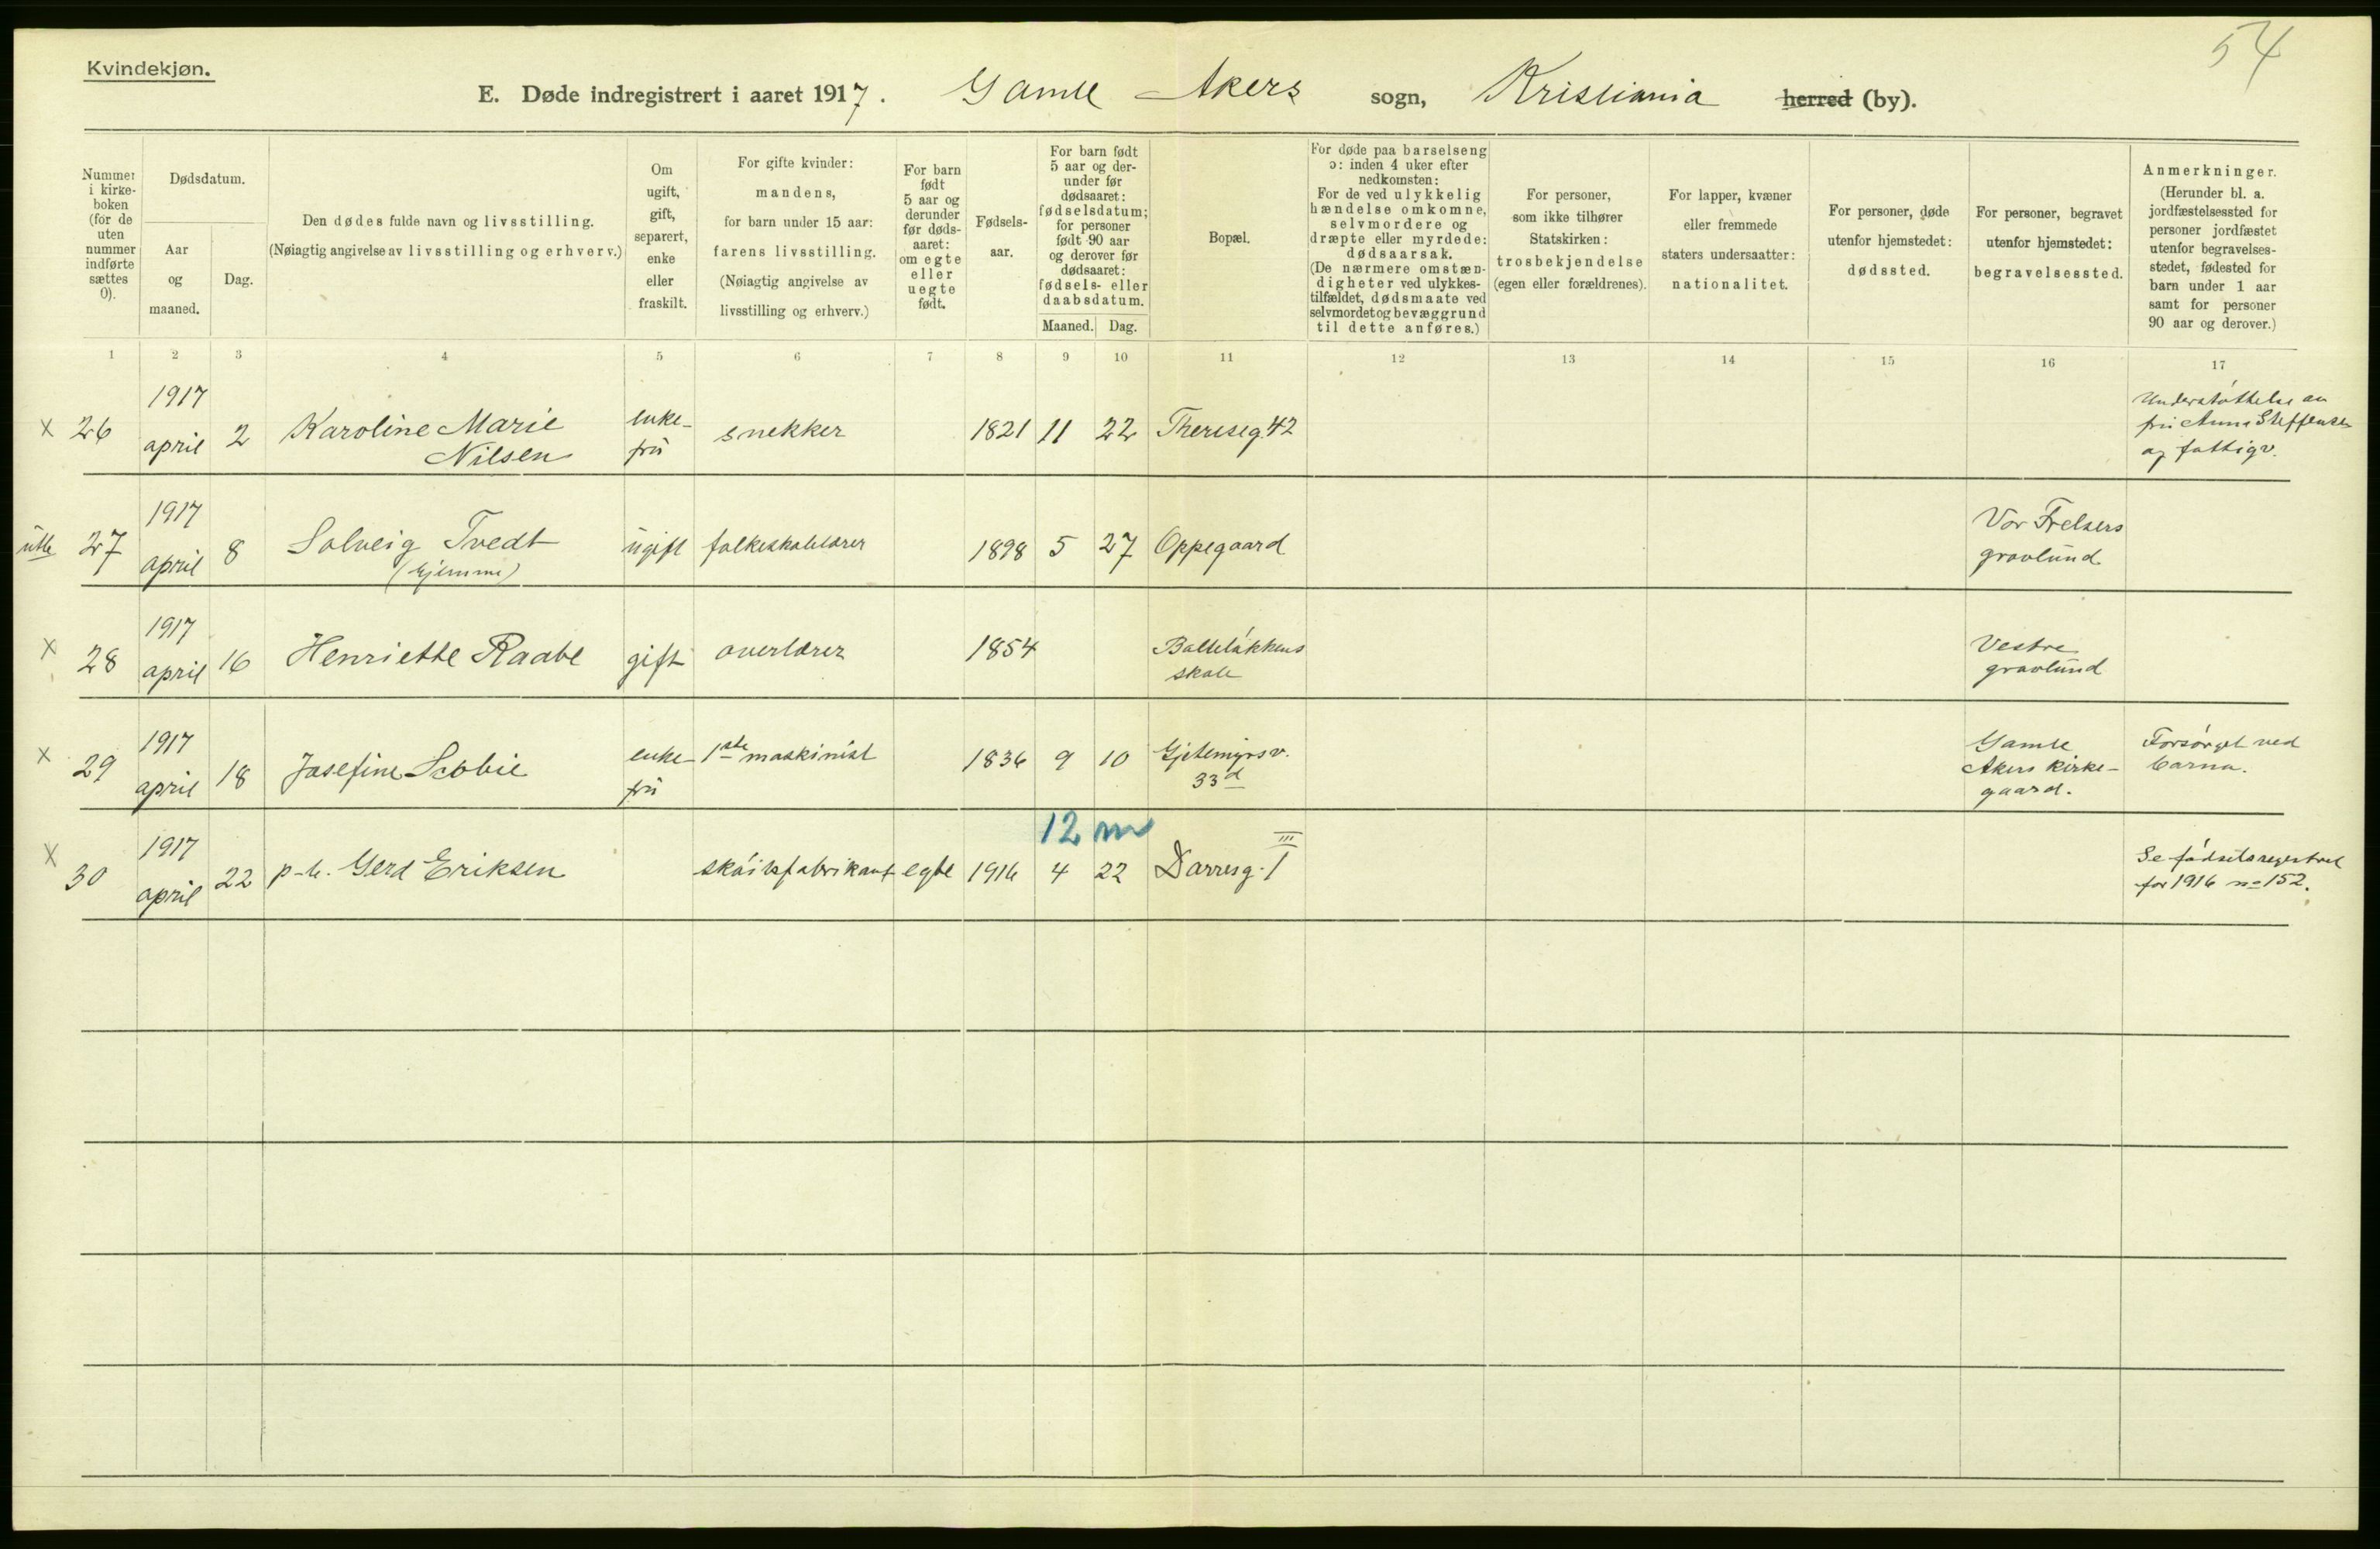 54
Kvindekjøn.
E. Døde indregistrert i aaret 1917. Gamle Akers sogn, Kristiania herred (by).
Nummer i kirke- boken (for de uten nummer indførte sættes 0).
Dødsdatum.
Aar og maaned.
Dag.
Den dødes fulde navn og livsstilling.
(Nøiagtig angivelse av livsstilling og erhverv.)
Om ugift, gift, separert, enke eller fraskilt.
For gifte kvinder:
mandens,
for barn under 15 aar:
farens livsstilling.
(Nøiagtig angivelse av
livsstilling og erhverv.)
For barn født 5 aar og derunder før døds- aaret: om egte eller uegte født.
Fødsels- aar.
For barn født 5 aar og der- under før dødsaaret: fødselsdatum; for personer født 90 aar og derover før dødsaaret: fødsels- eller daabsdatum.
Maaned. Dag.
Bopæl.
For døde paa barselseng
ɔ: inden 4 uker efter
nedkomsten:
For de ved ulykkelig
hændelse omkomne,
selvmordere og
dræpte eller myrdede:
dødsaarsak.
(De nærmere omstæn-
digheter ved ulykkes-
tilfældet, dødsmaate ved
selvmordet og bevæggrund
til dette anføres.)
For personer,
som ikke tilhører
Statskirken:
trosbekjendelse
(egen eller forældrenes).
For lapper, kvæner
eller fremmede
staters undersaatter:
nationalitet.
For personer, døde
utenfor hjemstedet:
dødssted.
For personer, begravet
utenfor hjemstedet:
begravelsessted.
Anmerkninger.
(Herunder bl. a.
jordfæstelsessted for
personer jordfæstet
utenfor begravelses-
stedet, fødested for
barn under 1 aar
samt for personer
90 aar og derover.)
1 2 3 4 5 6 7 8 9 10 11 12 13 14 15 16 17
x 26 1917 april 2 Karoline Marie Nilsen enke- frü snekker 1821 11 22 Thereseg. 42 Understøttelse av frü Anna Steffensen og fattigv.
27 1917 april 8 Solveig Tvedt (hjemme) ügift folkeskolelærer 1898 5 27 Oppegaard Vor Frelsers gravlünd
x 28 1917 april 16 Henriette Raabe gift overlærer 1854 Bolteløkkens skole Vestre gravlünd
x 29 1917 april 18 Josefine Scobie enke- frü 1ste maskinist 1836 9 10 Gjetemyrsv. 33d Gamle Akers kirke- gaard. Forsørget ved barna.
12 m
x 30 1917 april 22 p-b. Gerd Eriksen skøitefabrikant egte 1916 4 22 Darresg. 1 III Se fødselsregistret for 1916 no 152.